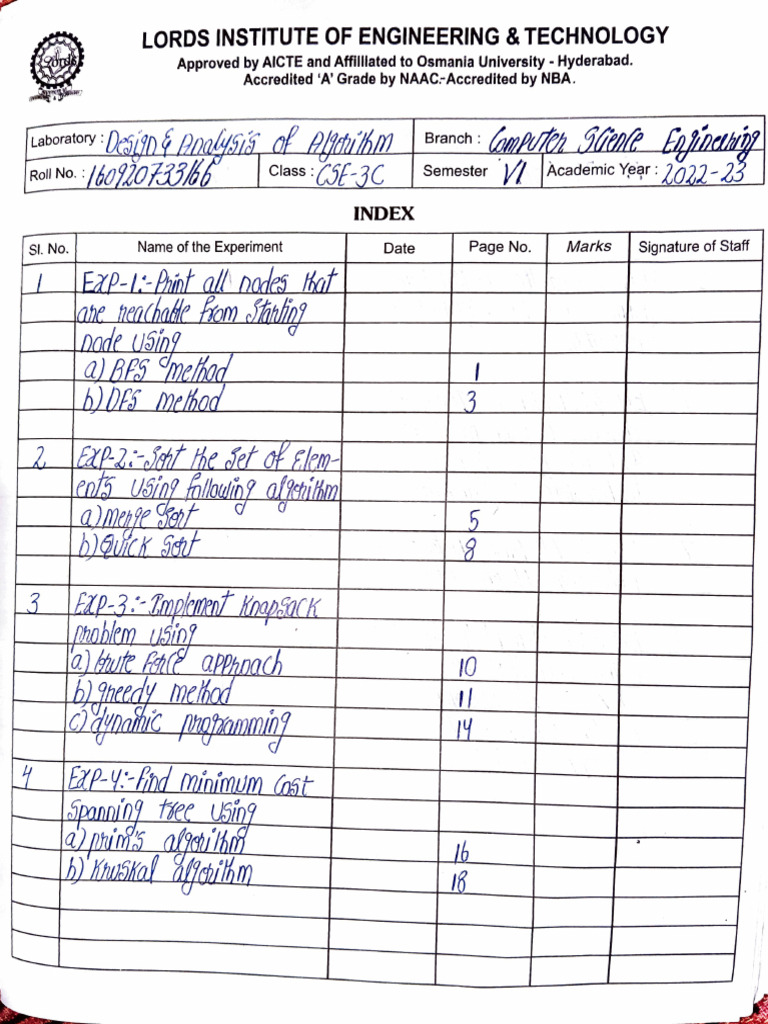 LORDS INSTITUTE OF ENGINEERING & TECHNOLOGY
Approved by AICTE and Affilliated to Osmania University - Hyderabad.
Accredited 'A' Grade by NAAC-Accredited by NBA.
Lords
Laboratory : Design & Analysis of Algorithm Branch : Computer Science Engineering
Roll No. : 160920733166 Class : CSE-3C Semester VI Academic Year : 2022-23
INDEX
Sl. No. Name of the Experiment Date Page No. Marks Signature of Staff
1 EXP-1:-Print all nodes that
are reachable from Starting
node using
a) BFS method 1
b) DFS method 3
2 EXP-2:-Sort the set of Elem-
ents using following algorithm
a) merge sort 5
b) Quick sort 8
3 EXP-3:-Implement Knapsack
problem using
a) brute force approach 10
b) greedy method 11
c) dynamic programming 14
4 EXP-4:-Find minimum cost
spanning tree using
a) prim's algorithm 16
b) Kruskal algorithm 18